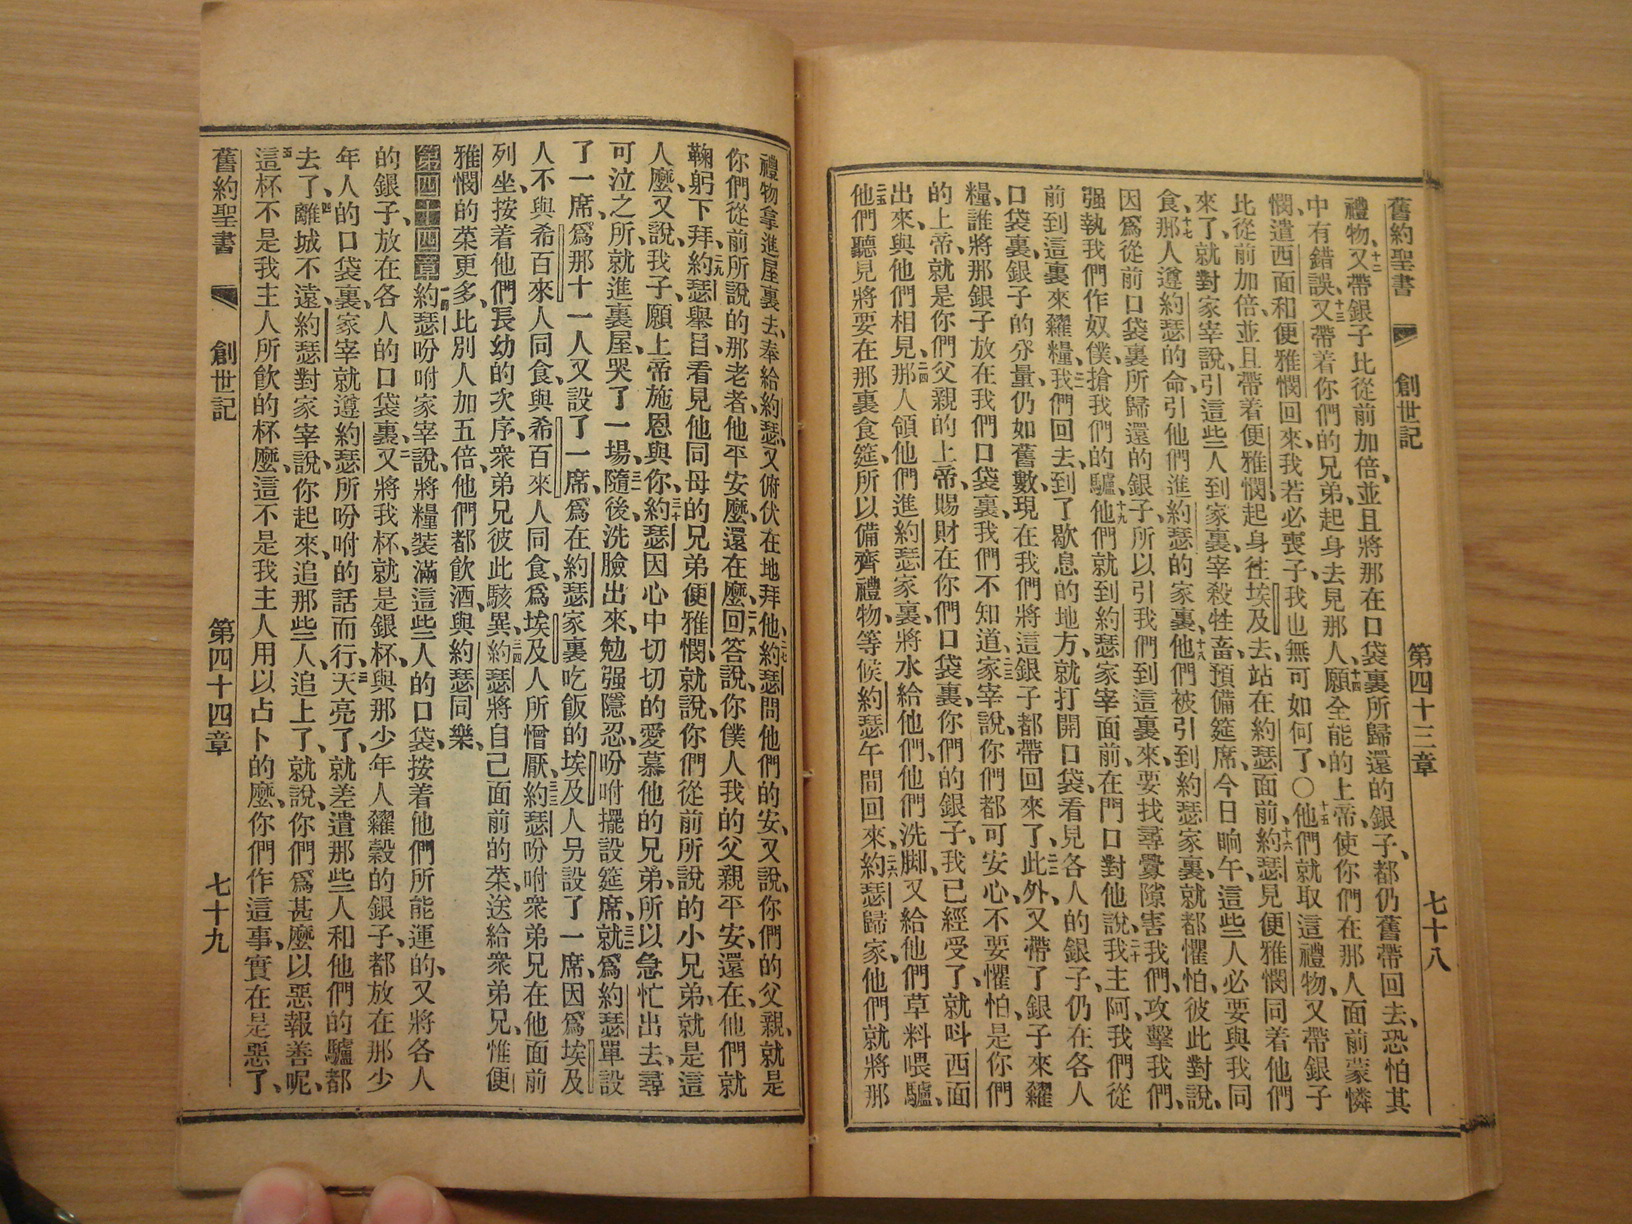 舊約聖書 創世記 第四十三章 七十八
禮物、十二又帶銀子比從前加倍、並且將那在口袋裏所歸還的銀子、都仍舊帶回去、恐怕其
中有錯誤、十三又帶着你們的兄弟起身去見那人、十四願全能的上帝使你們在那人面前蒙憐
憫、遣西面和便雅憫回來、我若必喪子、我也無可如何了、〇十五他們就取這禮物、又帶銀子
比從前加倍、並且帶着便雅憫起身往埃及去、站在約瑟面前、十六約瑟見便雅憫同着他們
來了、就對家宰說、引這些人到家裏、宰殺牲畜、預備筵席、今日晌午、這些人必要與我同
食、十七那人遵約瑟的命、引他們進約瑟的家裏、十八他們被引到約瑟家裏、就都懼怕、彼此對說、
因爲從前口袋裏所歸還的銀子、所以引我們到這裏來、要找尋釁隙害我們、攻擊我們、
强執我們作奴僕、搶我們的驢、十九他們就到約瑟家宰面前、在門口對他說、二十我主阿、我們從
前到這裏來糴糧、二一我們回去、到了歇息的地方、就打開口袋、看見各人的銀子、仍在各人
口袋裏、銀子的分量、仍如舊數、現在我們將這銀子都帶回來了、二二此外、又帶了銀子來糴
糧、誰將那銀子放在我們口袋裏、我們不知道、二三家宰說、你們都可安心、不要懼怕、是你們
的上帝、就是你們父親的上帝、賜財在你們口袋裏、你們的銀子、我已經受了、就呌西面
出來、與他們相見、二四那人領他們進約瑟家裏、將水給他們、他們洗脚、又給他們草料喂驢、
二五他們聽見將要在那裏食筵、所以備齊禮物、等候約瑟午間回來、二六約瑟歸家、他們就將那
禮物拿進屋裏去、奉給約瑟、又俯伏在地拜他、二七約瑟問他們的安、又說、你們的父親、就是
你們從前所說的那老者、他平安麼、還在麼、二八回答說、你僕人我的父親平安、還在、他們就
鞠躬下拜、二九約瑟舉目看見他同母的兄弟便雅憫、就說、你們從前所說的小兄弟、就是這
人麼、又說、我子、願上帝施恩與你、三十約瑟因心中切切的愛慕他的兄弟、所以急忙出去、尋
可泣之所、就進裏屋、哭了一場、三一隨後、洗臉出來、勉强隱忍、吩咐擺設筵席、三二就爲約瑟單設
了一席、爲那十一人又設了一席、爲在約瑟家裏吃飯的埃及人另設了一席、因爲埃及
人不與希百來人同食、與希百來人同食、爲埃及人所憎厭、三三約瑟吩咐衆弟兄在他面前
列坐、按着他們長幼的次序、衆弟兄彼此駭異、三四約瑟將自己面前的菜、送給衆弟兄、惟便
雅憫的菜更多、比別人加五倍、他們都飮酒、與約瑟同樂、
第四十四章 一約瑟吩咐家宰說、將糧裝滿這些人的口袋、按着他們所能運的、又將各人
的銀子、放在各人的口袋裏、二又將我杯、就是銀杯、與那少年人糴穀的銀子、都放在那少
年人的口袋裏、家宰就遵約瑟所吩咐的話而行、三天亮了、就差遣那些人和他們的驢都
去了、四離城不遠、約瑟對家宰說、你起來、追那些人、追上了、就說、你們爲甚麼以惡報善呢、
五這杯不是我主人所飮的杯麼、這不是我主人用以占卜的麼、你們作這事、實在是惡了、
舊約聖書 創世記 第四十四章 七十九